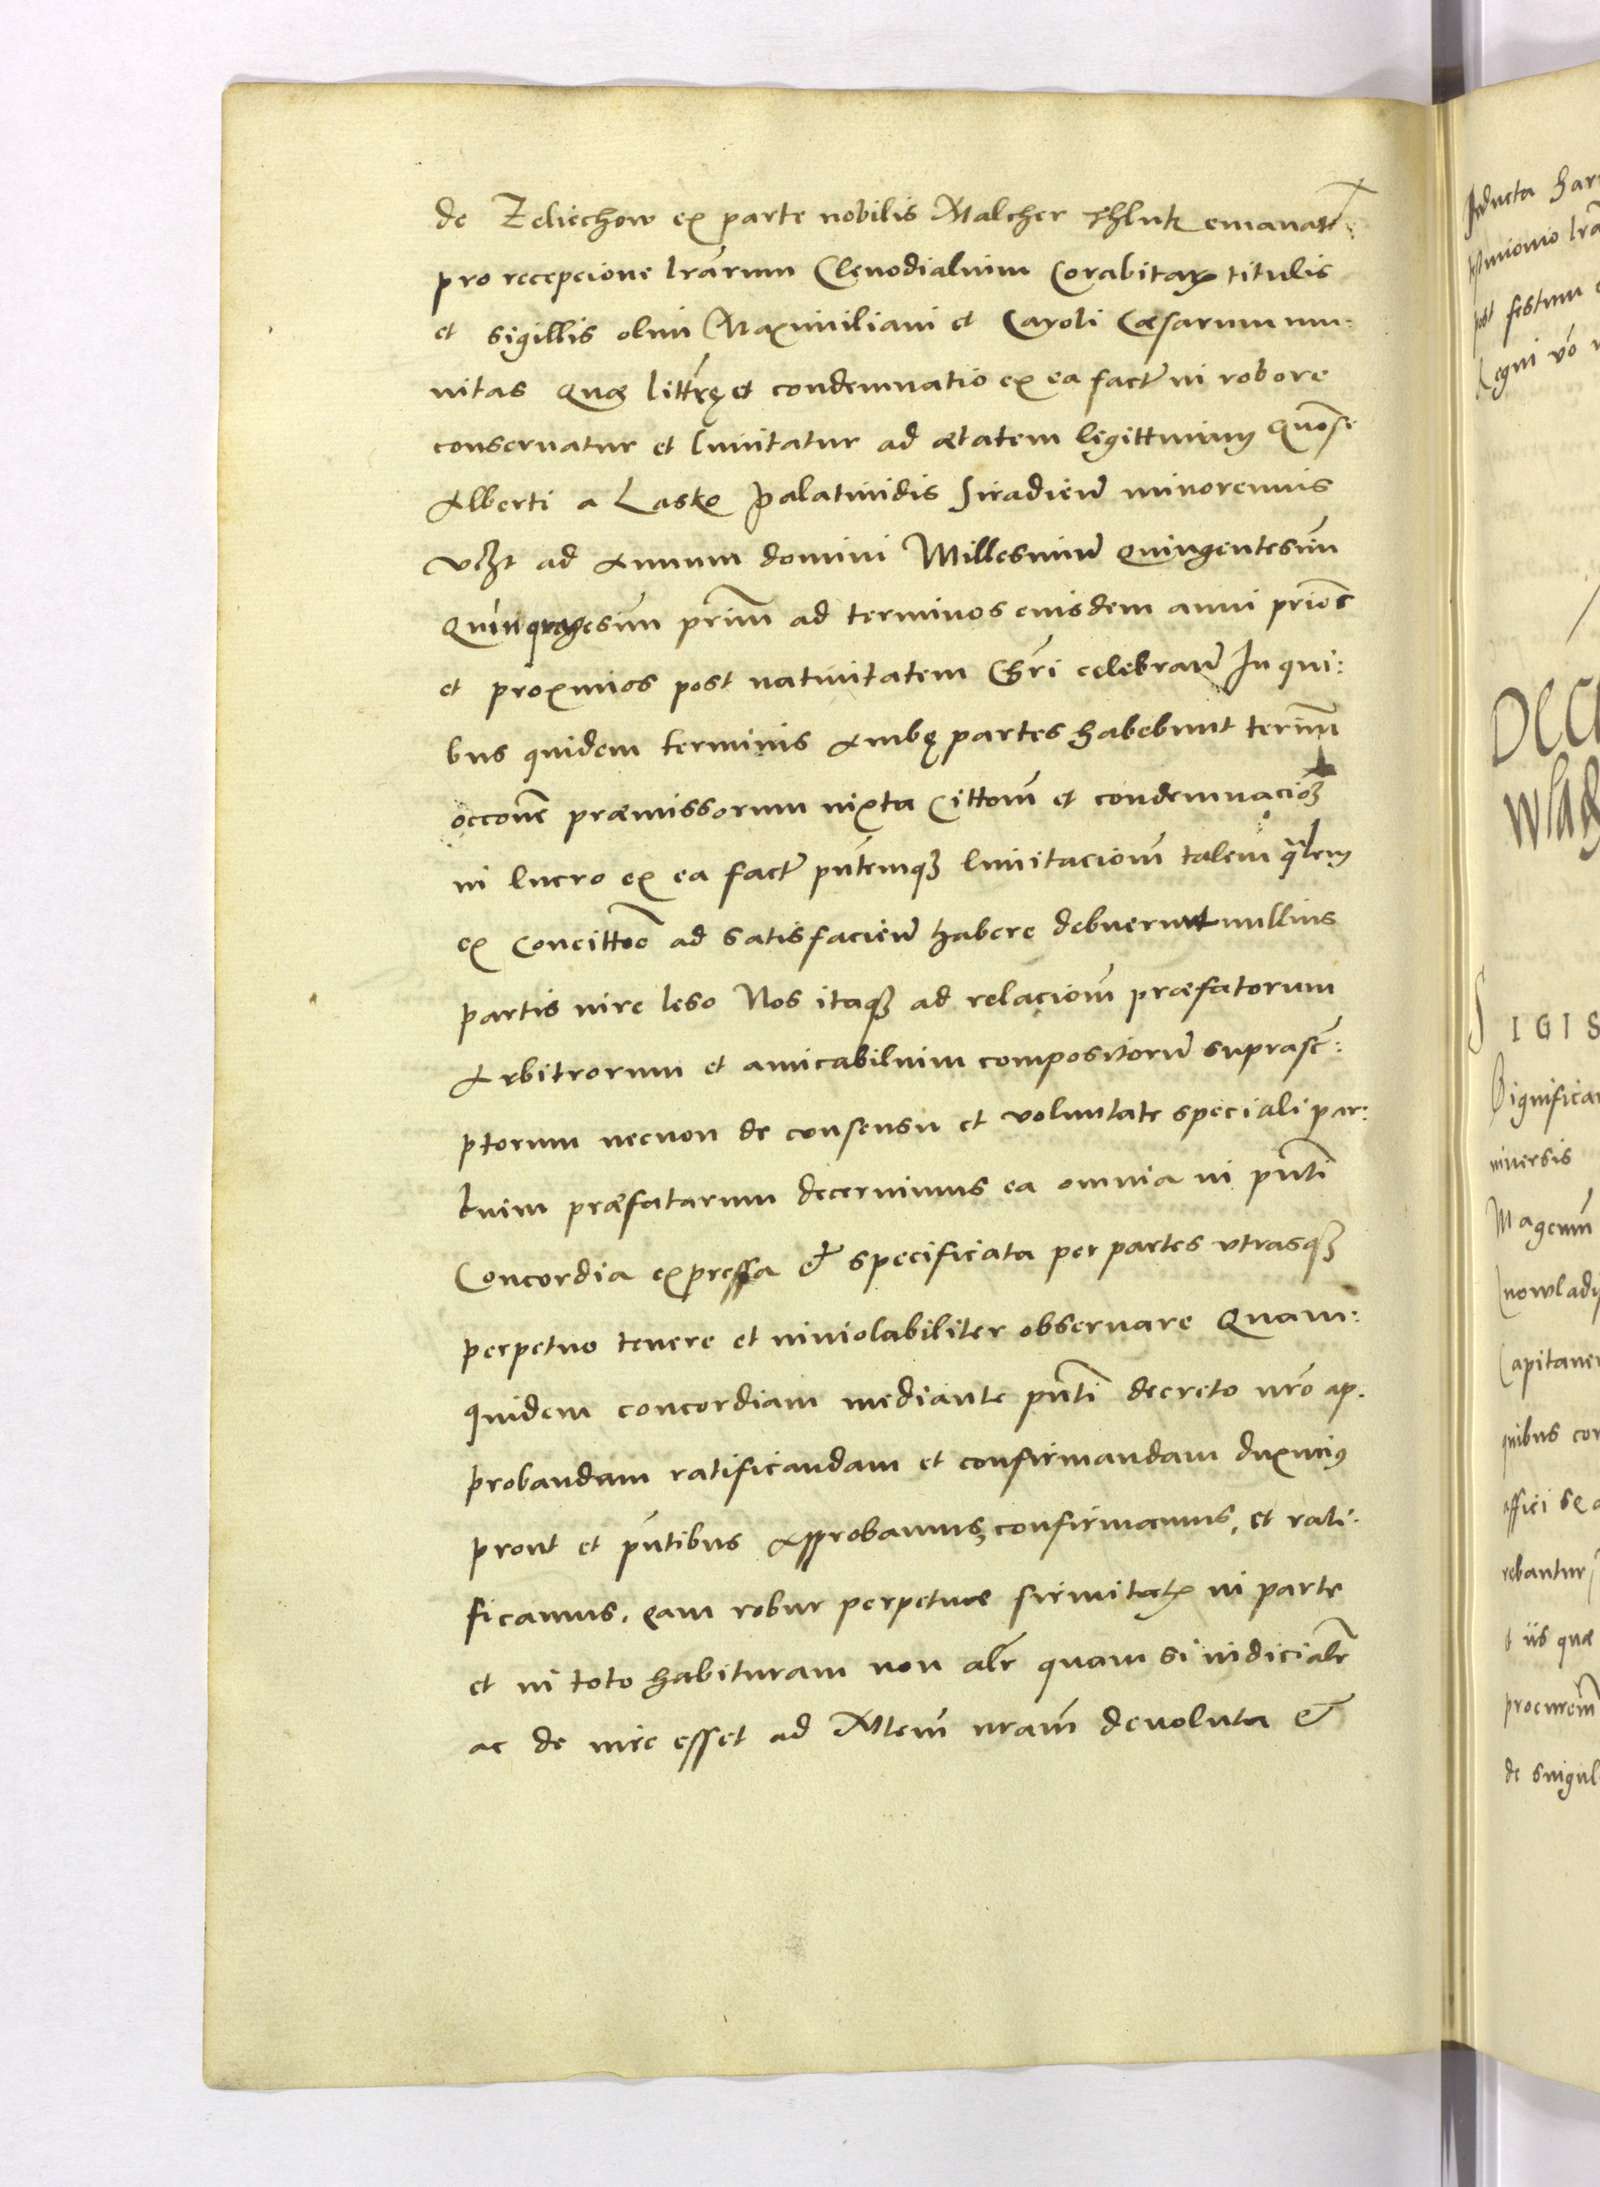 de Zeliechow ex parte nobilis Malcher emanat
pro recepcione lrarum Clenodialium Corabitar titulis
et sigillis olim Maximiliani et Caroli Cæsarum mu:
nitas Quæ littrę et condemnatio ex ea fact in robore
conservatur et limitatur ad ætatem ligittimam Quonse
Alberti a Lasko palatinidis Siradien minorennis
vczt ad Annum domini Millesimu Quingentesim
Quinquagesim prim ad terminos eiusdem anni priores
et proximos post nativitatem celebran In qui:
bus quidem terminis Ambę partes habebunt termin
occone præmissorum iuxta Cittom et condemnacioz
in lucro ex ea fact pntemqz limitaciom talem qualem
ex Concittoe ad satisfacien habere debuerunt nullius
partis iure leso Nos itaqz ad relaciom præfatorum
Arbitrorum et amicabilium compositoru suprasc:
ptorum necnon de consensu et voluntate speciali par:
tium præfatarum decernimus ea omnia in pnti
Concordia expressa & specificata per partes vtrasqz
perpetuo tenere et inviolabiliter observare Quam:
quidem concordiam mediante pnti decreto nro ap:
probandam ratificandam et confirmandam duximus
prout et pntibus Approbamus, confirmamus, et rati:
ficamus, eam robur perpetuæ firmitatis in parte
et in toto habituram non alr quam si iudicialr
ac de iure esset ad Mtem nram devoluta &
Inducta
post festum
Regni vo
DEC
SIGIS
Significa
niversis
Magcum
Inowladis
Capitane
quibus con
affici se
rebantur
iis quæ
procurem
de singul